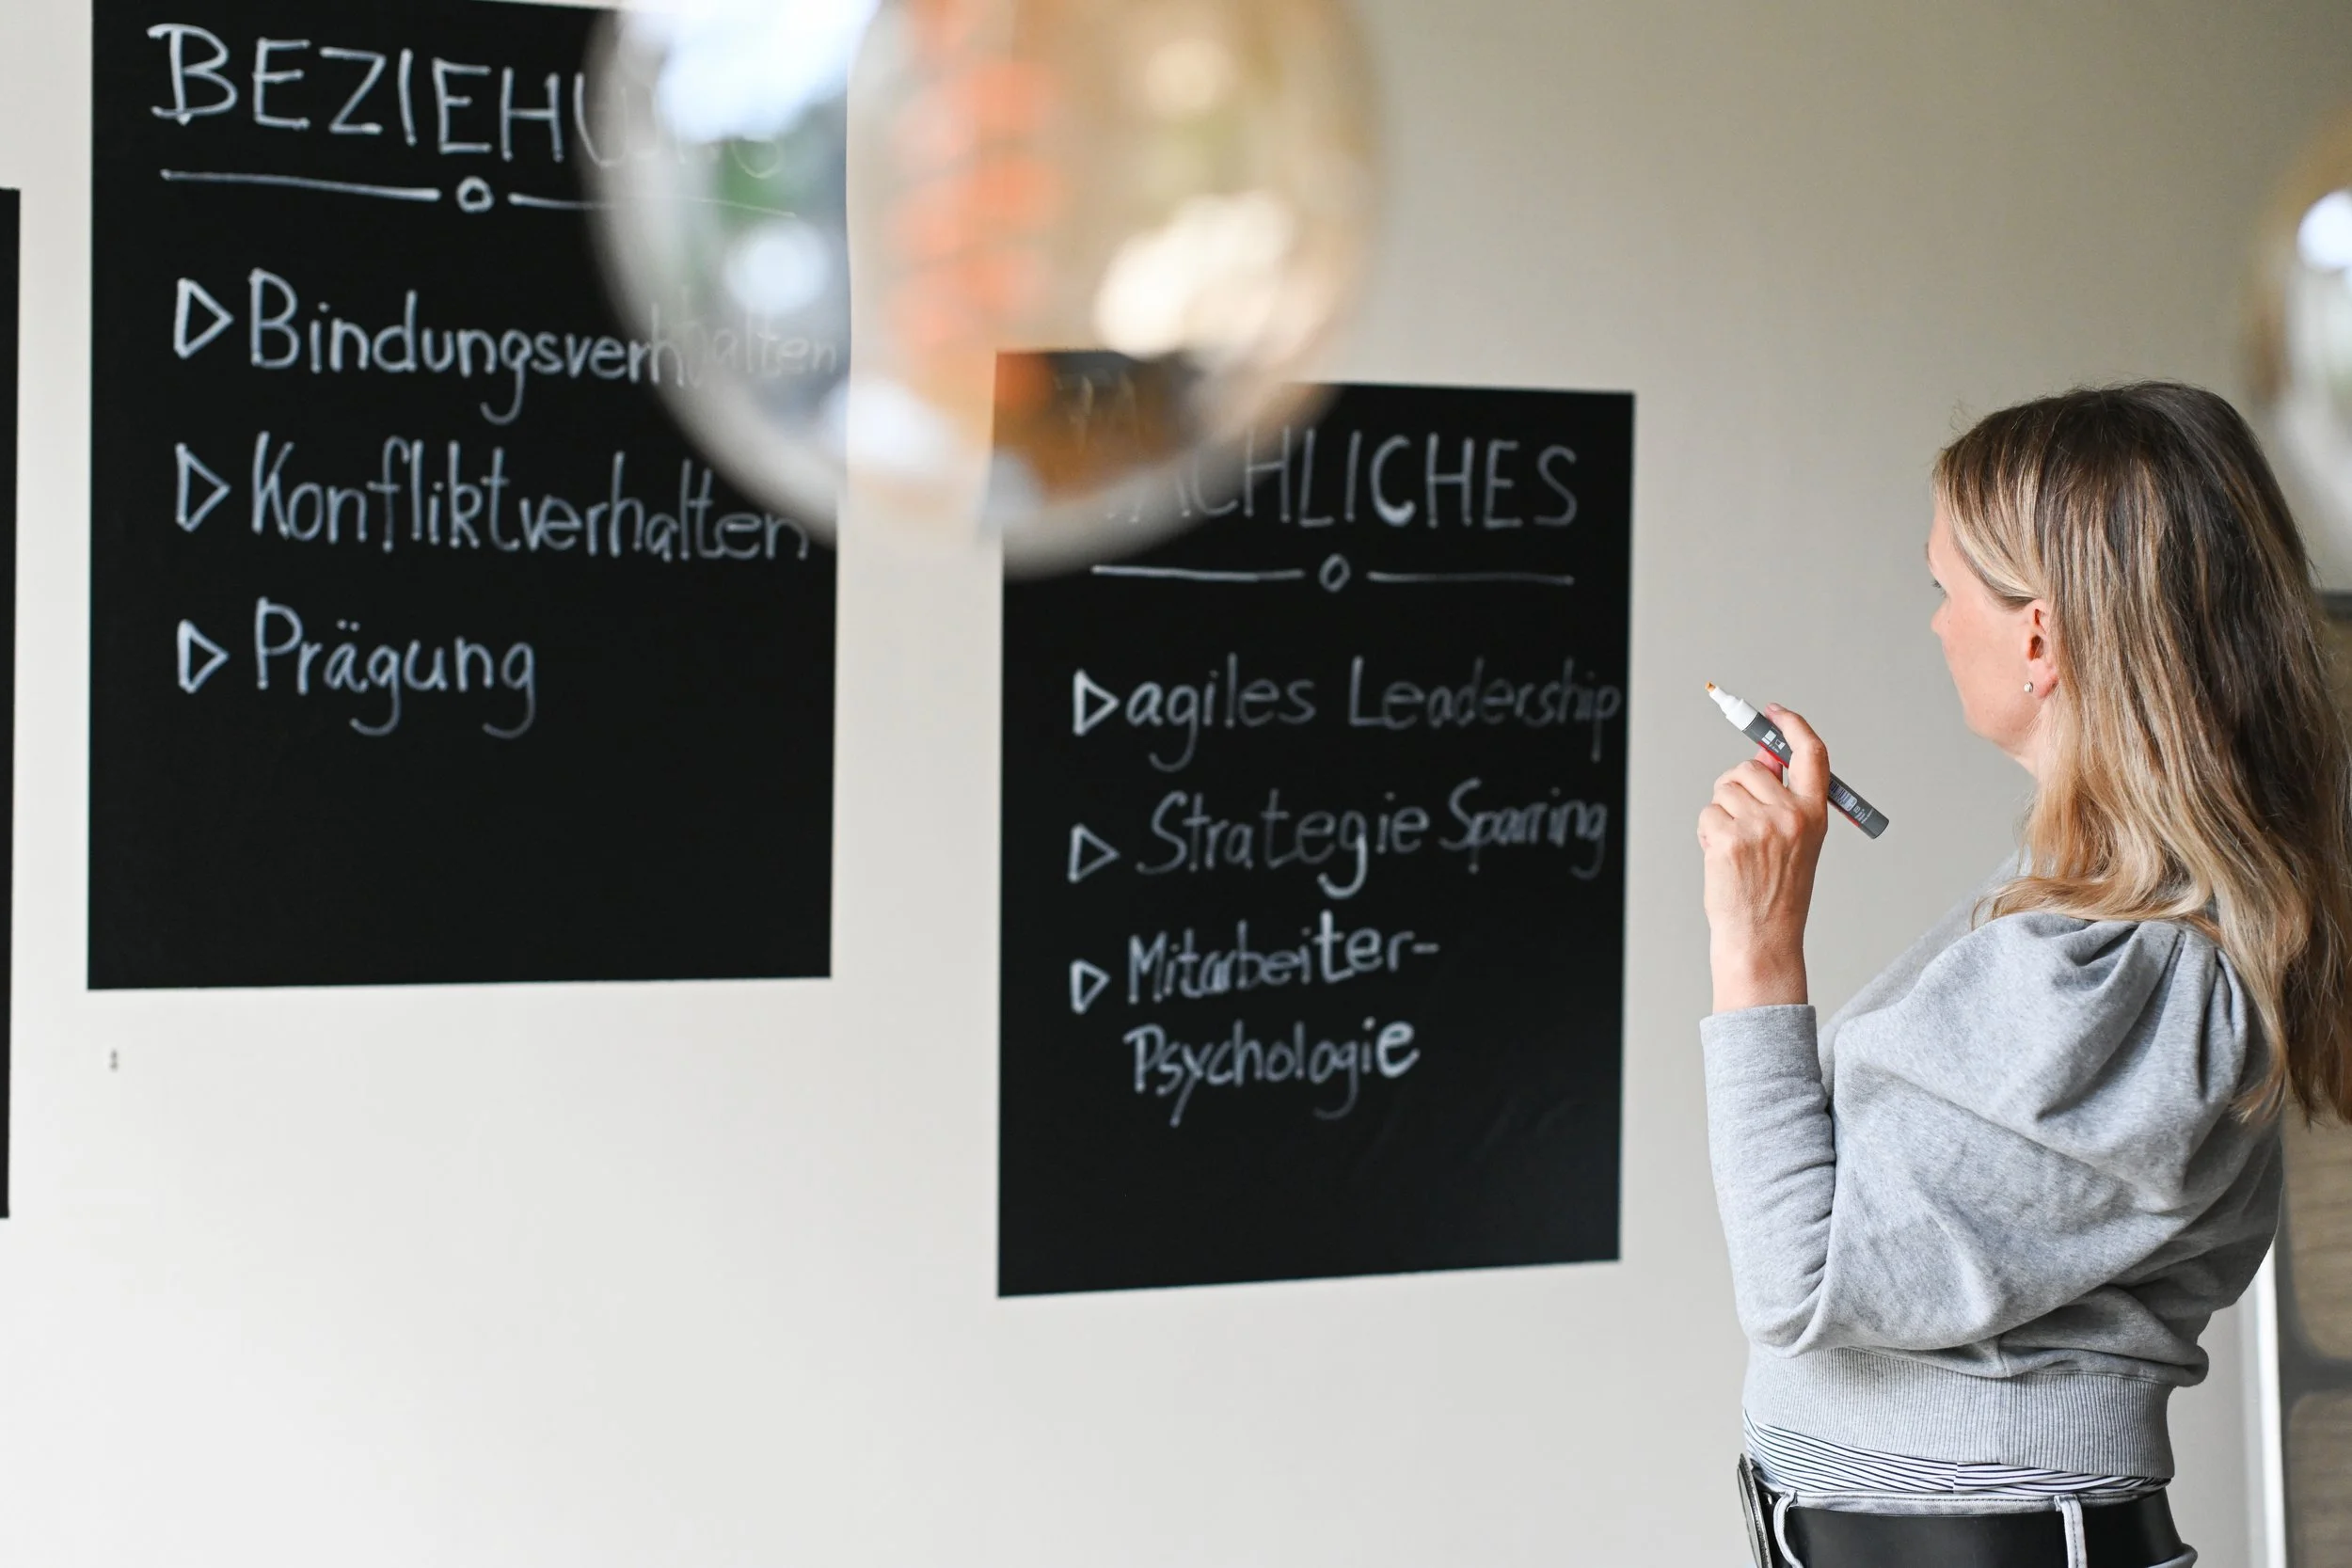 BEZIEHUNG
Bindungsverhalten
Konfliktverhalten
Prägung
FACHLICHES
agiles Leadership
Strategie Sparring
Mitarbeiter-
Psychologie